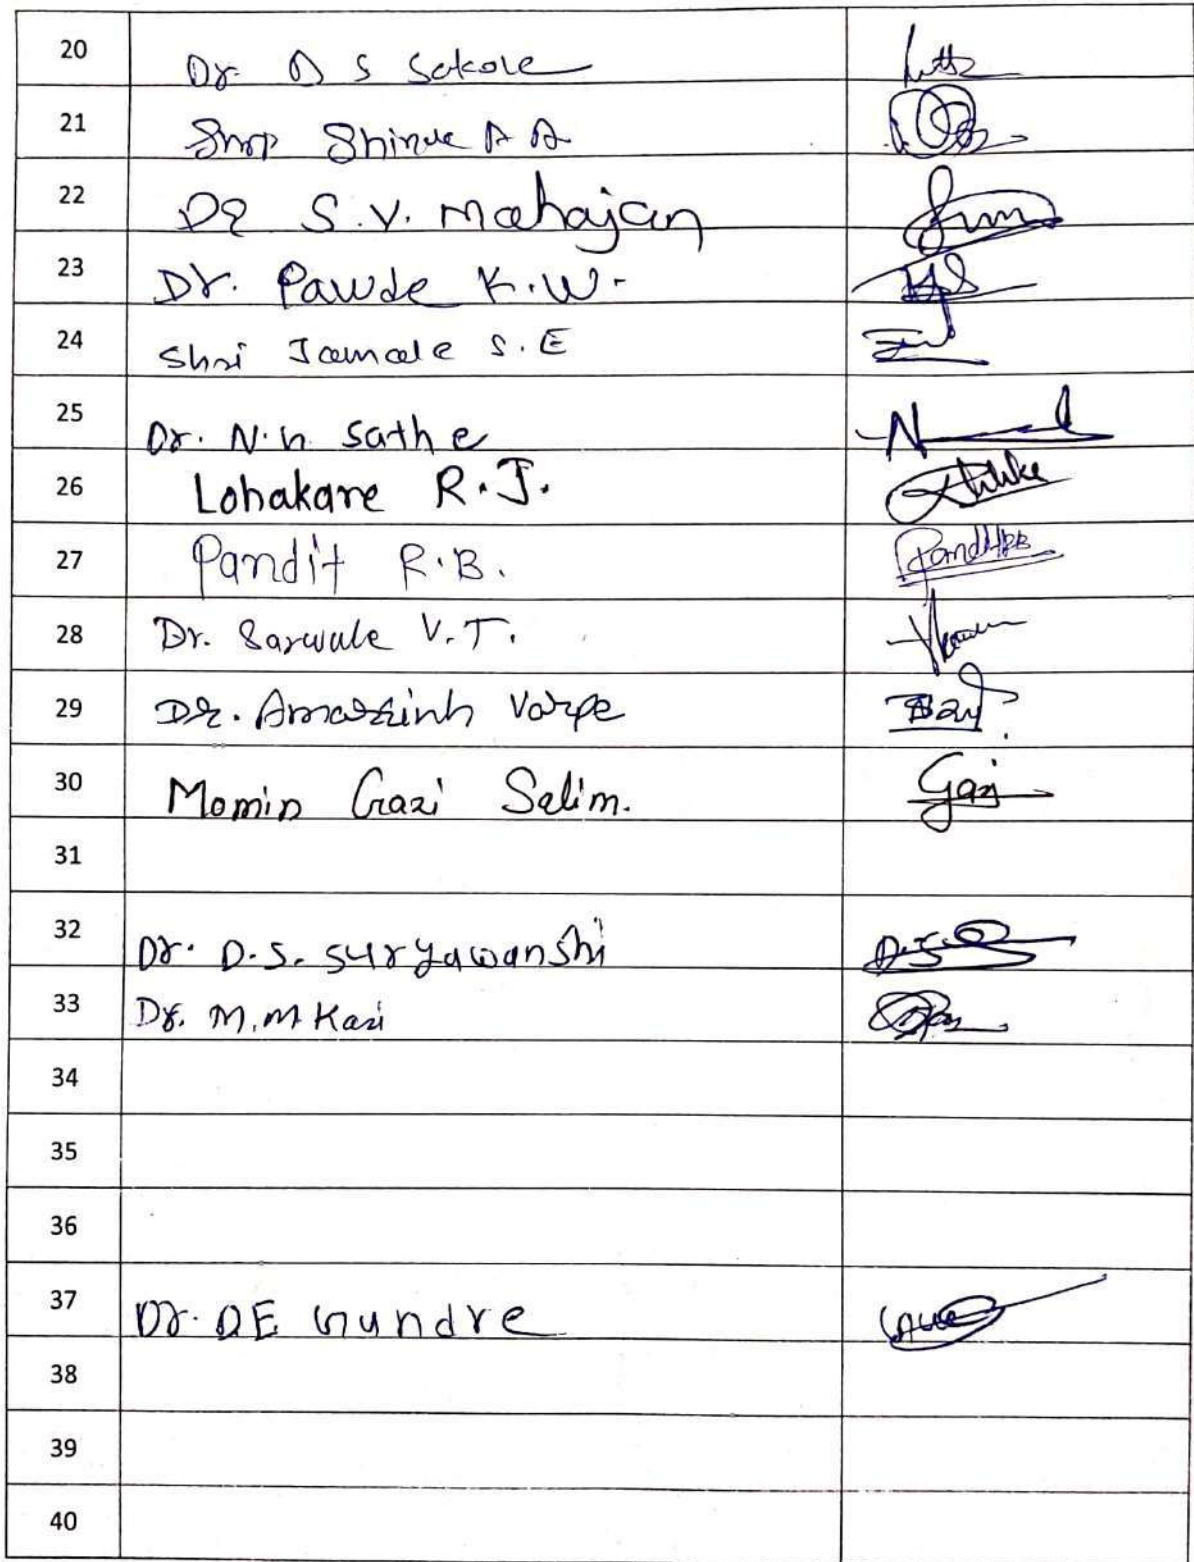 20 Dr. D S Sakole
21 Shinde A A
22 Dr S.V. Mahajan
23 Dr. Pawde K.W.
24 Shri Jamale S.E
25 Dr. N.n. Sathe
26 Lohakare R.J.
27 Pandit R.B. PanditRB
28 Dr. Sarwale V.T.
29 Dr. Amarsinh Varpe
30 Momin Gazi Salim. Gazi
31
32 Dr. D.S. Suryawanshi
33 Dr. M.M Kazi
34
35
36
37 Dr. DE Gundre
38
39
40